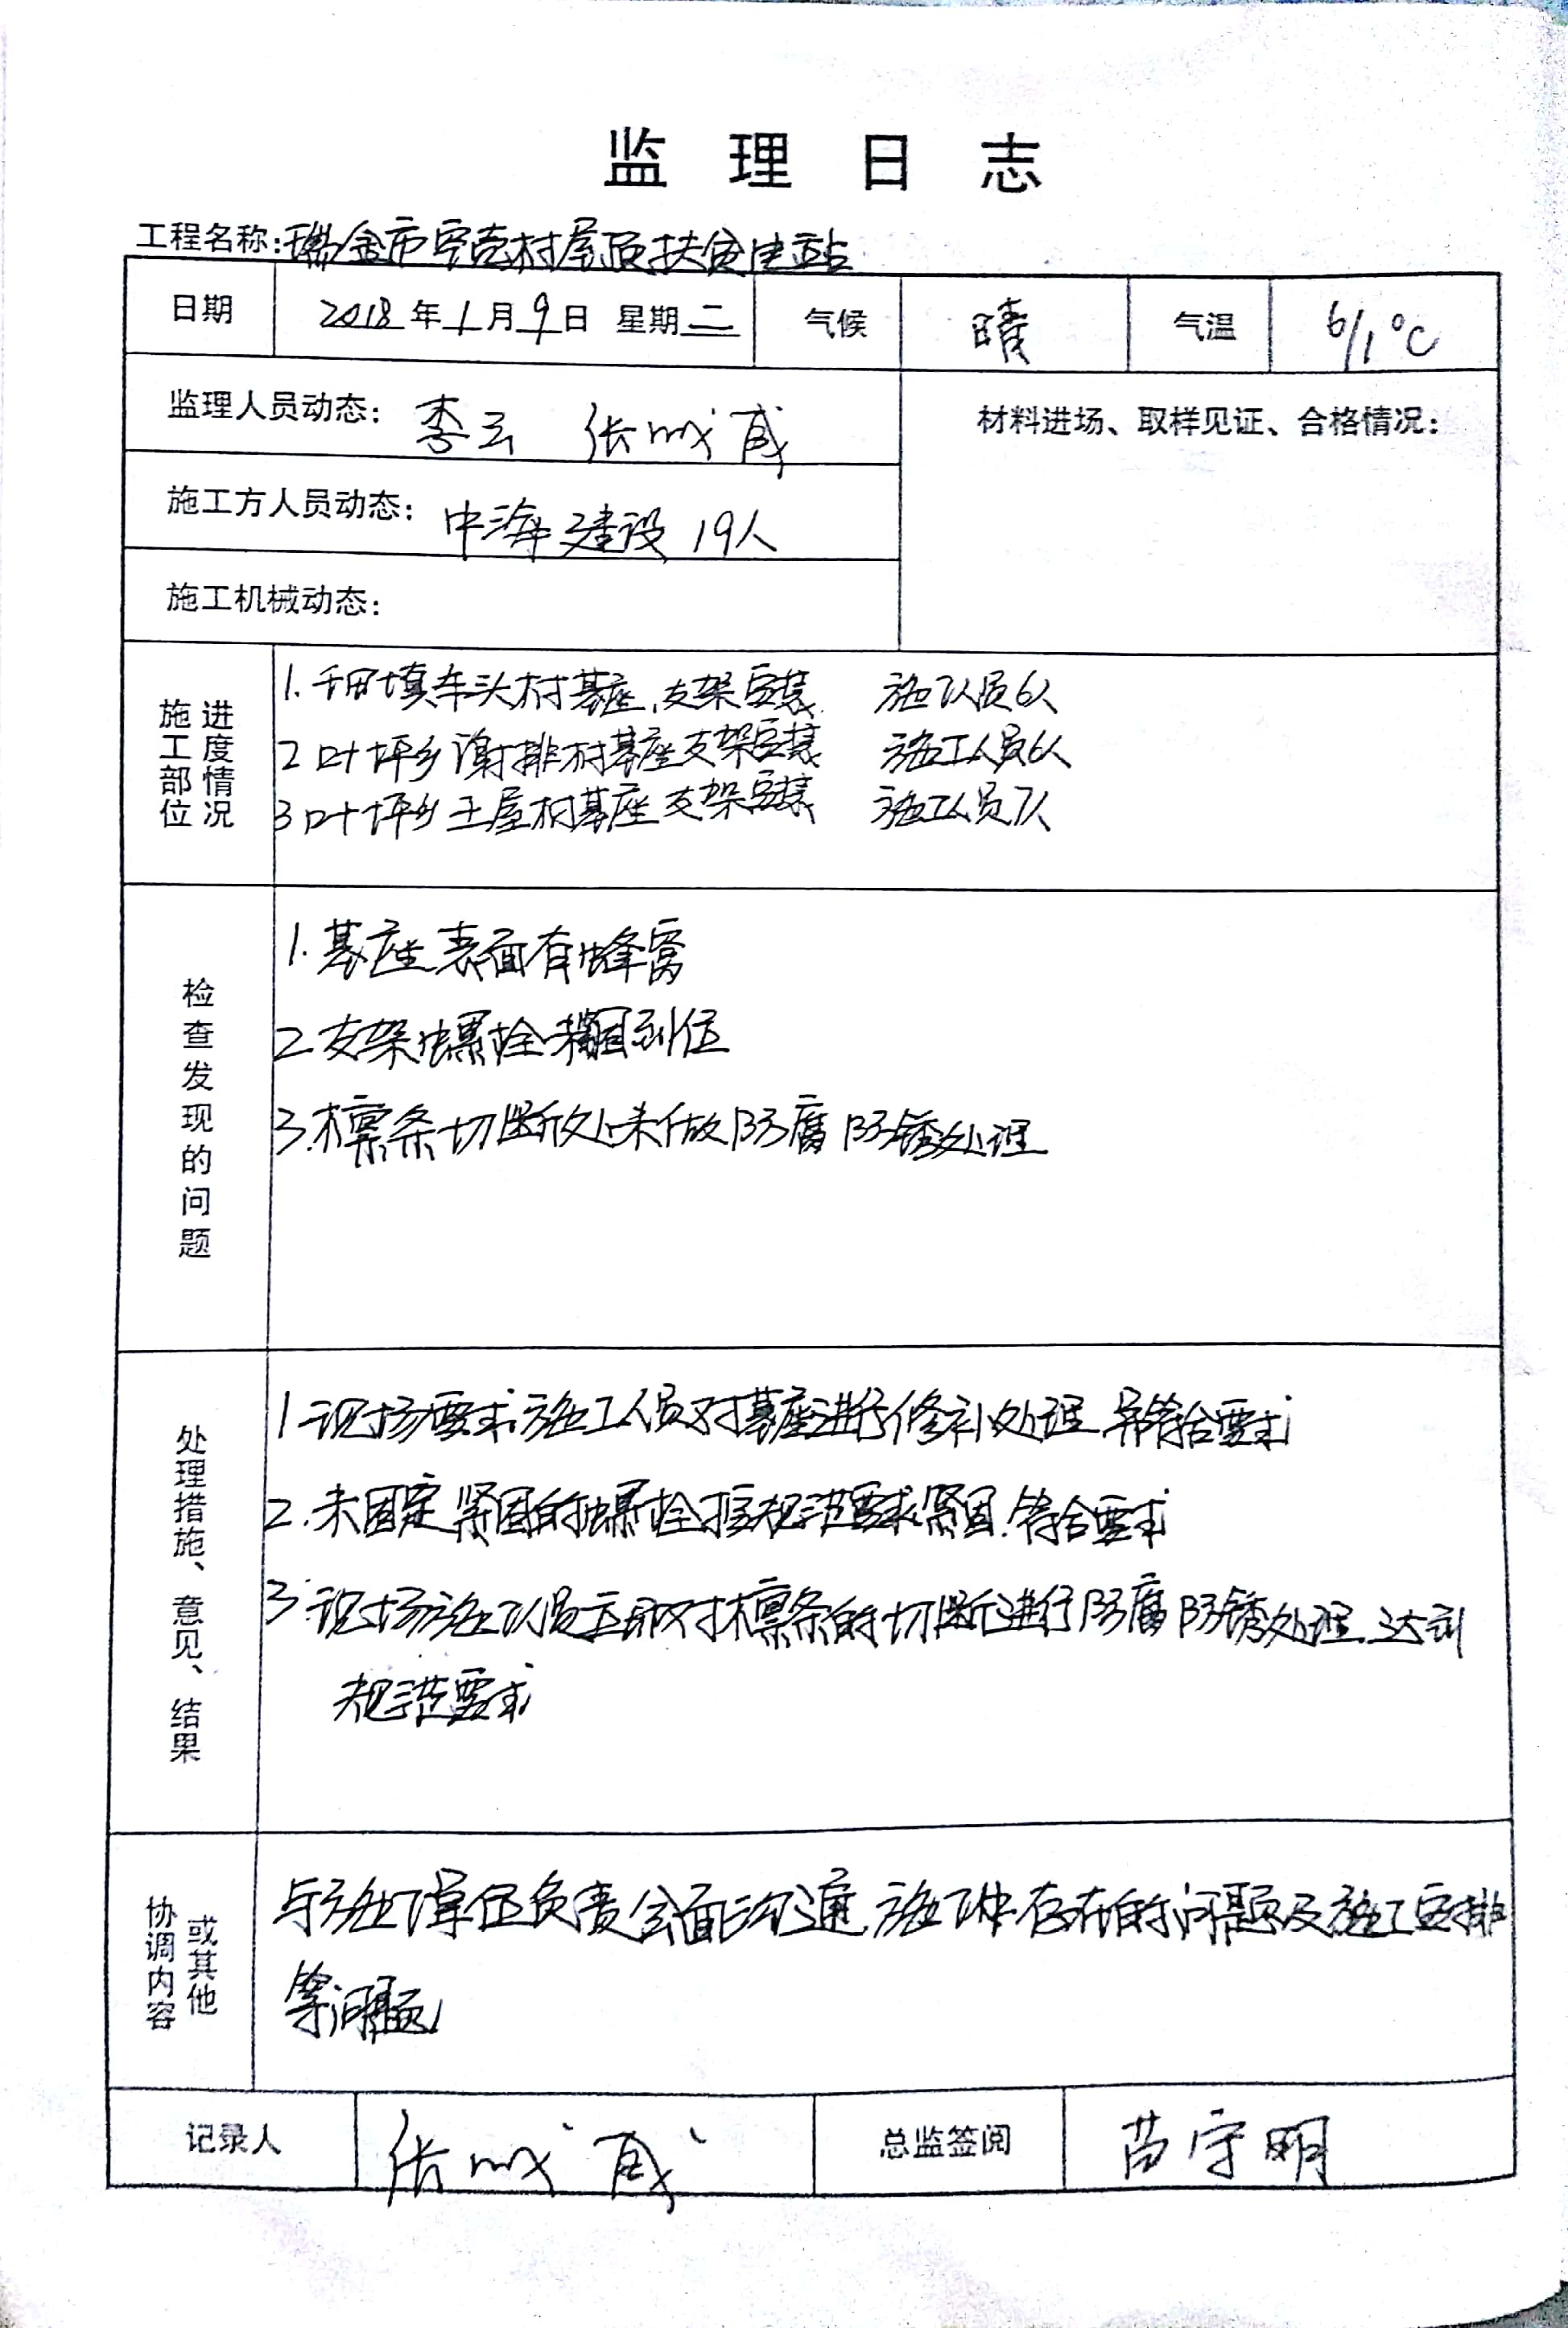 监理日志
工程名称:瑞金市罕壳村屋顶扶贫电站
日期 2018年1月9日 星期二 气候 晴 气温 6/1℃
监理人员动态: 李云 张 威
材料进场、取样见证、合格情况:
施工方人员动态: 中海建设 19人
施工机械动态:
施工部位 进度情况
1. 车头村基座、支架安装 施工人员6人
2 叶坪乡谢排村基座支架安装 施工人员6人
3 叶坪乡王屋村基座支架安装 施工人员7人
检查发现的问题
1. 基座表面有蜂窝
2. 支架螺栓未紧固到位
3. 檩条切断处未做防腐防锈处理
处理措施、意见、结果
1 现场要求施工人员对基座进行修补处理 符合要求
2. 未固定紧固的螺栓按规范要求紧固.符合要求
3. 现场施工人员立即对檩条的切断进行防腐防锈处理.达到
规范要求
协调内容 或其他
与施工单位负责 会面沟通 施工中存在的问题及施工安排
等问题
记录人 张 威 总监签阅 苗守明